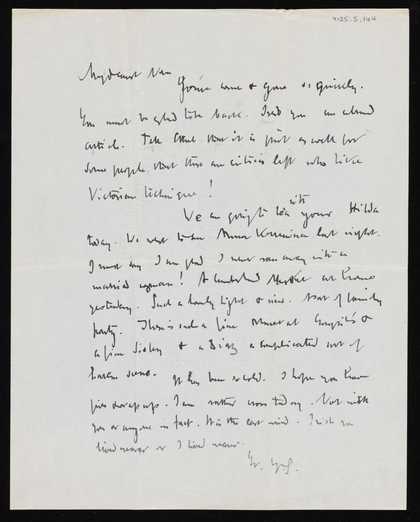 9125.5.144
My dearest Nan
You've come & gone so quickly.
You must be glad to be back. I send you an absurd
article. Tell Ethel that it is just as well for
some people that there are critics left who like
Victorian technique!
We are going to tea with your Hilda
today. We went to see Anna Karenina last night.
I must say I am glad I never ran away with a
married woman! A wonderful at
yesterday. Such a lovely light & nice. Sort of family
party. There is such a fine Monet at &
a fine Sisley & a a complicated sort of
scene. It has been so cold. I hope you have
fires. I am rather cross today. Not with
you or anyone in fact. It is the east wind. I wish you
lived nearer or I lived nearer.
Yr.